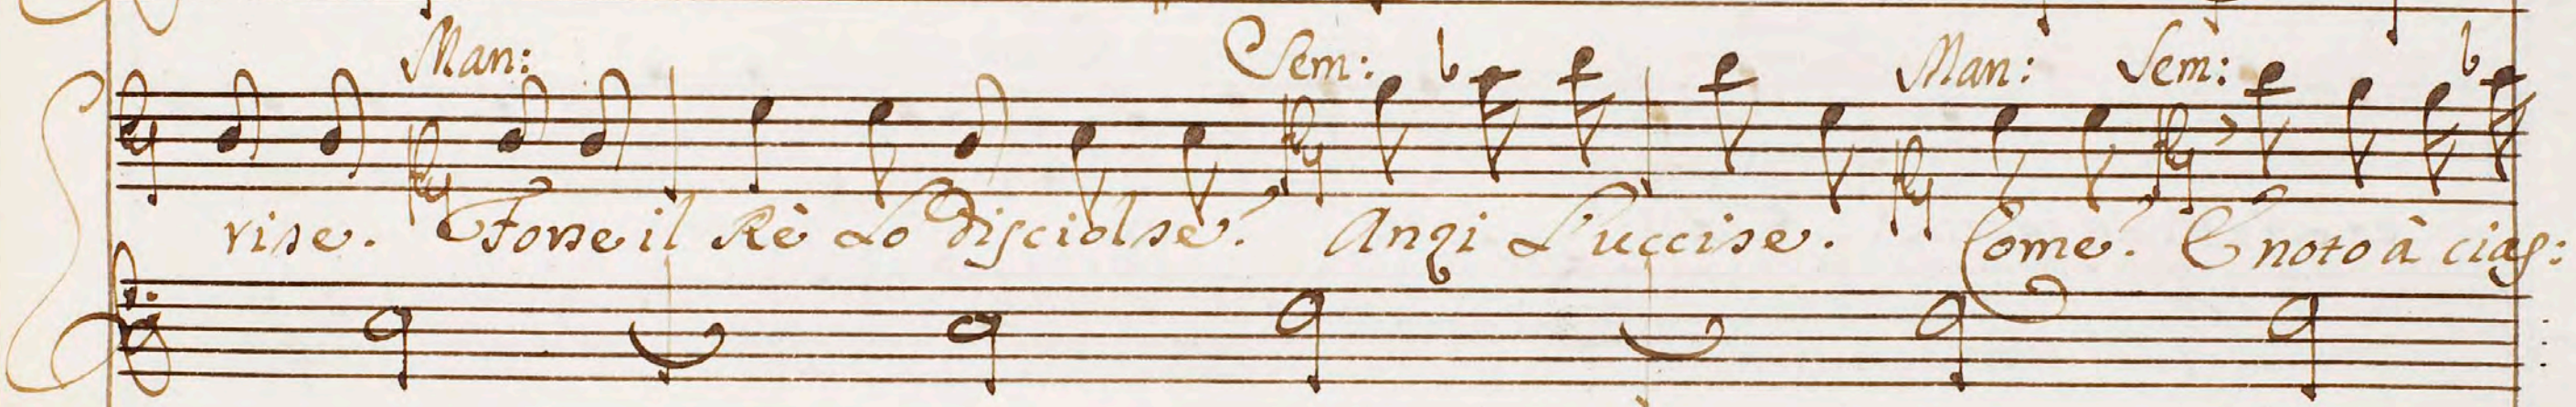 Man: Sem: Man: Sem:
rise. Forse il Rè Lo disciolse? Anzi L'uccise. Come? È noto à cias: